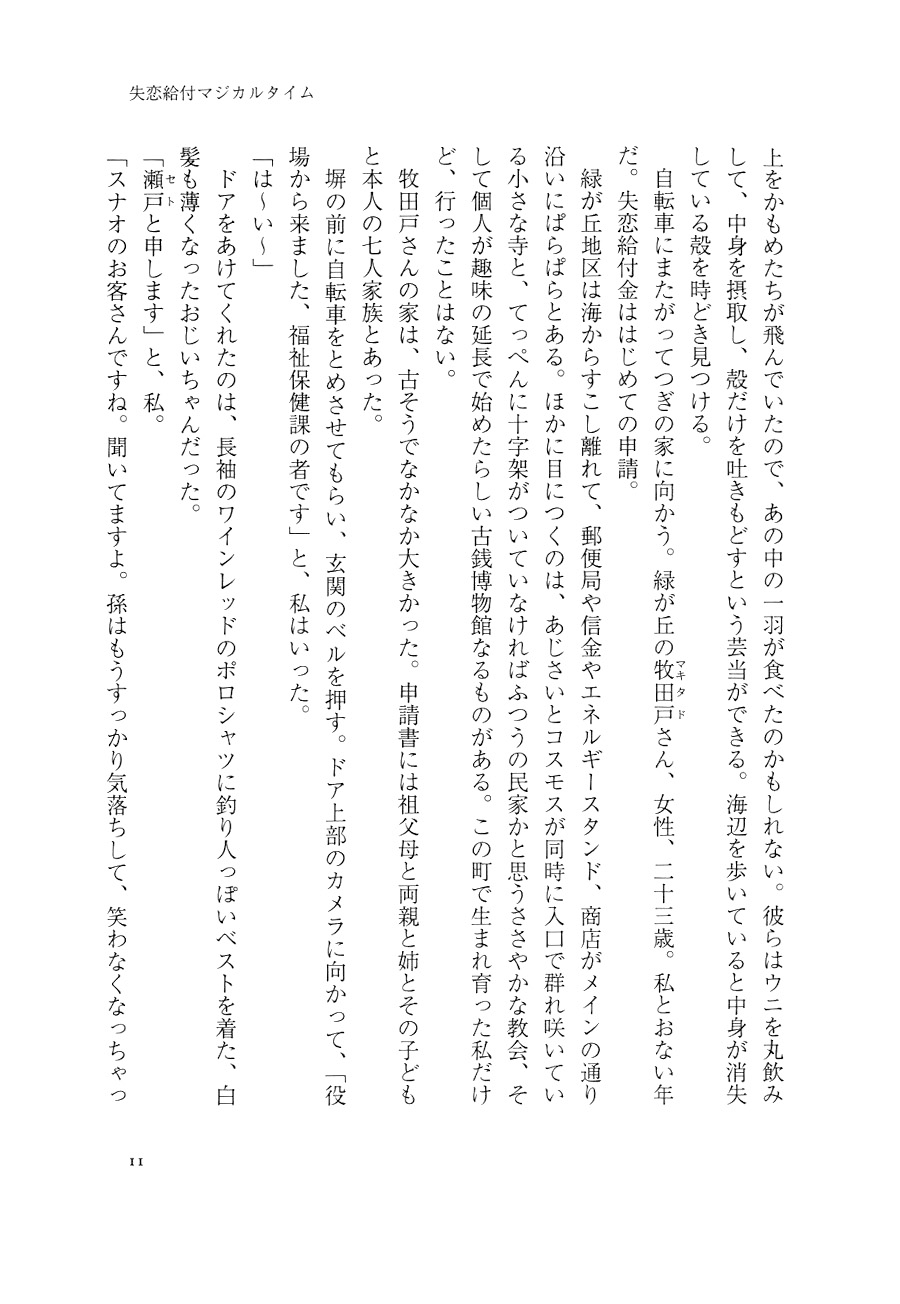 失恋給付マジカルタイム
上をかもめたちが飛んでいたので、あの中の一羽が食べたのかもしれない。彼らはウニを丸飲み
して、中身を摂取し、殻だけを吐きもどすという芸当ができる。海辺を歩いていると中身が消失
している殻を時どき見つける。
　自転車にまたがってつぎの家に向かう。緑が丘の牧田戸さん、女性、二十三歳。私とおない年
マキタド
だ。失恋給付金ははじめての申請。
　緑が丘地区は海からすこし離れて、郵便局や信金やエネルギースタンド、商店がメインの通り
沿いにぱらぱらとある。ほかに目につくのは、あじさいとコスモスが同時に入口で群れ咲いてい
る小さな寺と、てっぺんに十字架がついていなければふつうの民家かと思うささやかな教会、そ
して個人が趣味の延長で始めたらしい古銭博物館なるものがある。この町で生まれ育った私だけ
ど、行ったことはない。
　牧田戸さんの家は、古そうでなかなか大きかった。申請書には祖父母と両親と姉とその子ども
と本人の七人家族とあった。
　塀の前に自転車をとめさせてもらい、玄関のベルを押す。ドア上部のカメラに向かって、「役
場から来ました、福祉保健課の者です」と、私はいった。
「は〜い〜」
　ドアをあけてくれたのは、長袖のワインレッドのポロシャツに釣り人っぽいベストを着た、白
髪も薄くなったおじいちゃんだった。
「瀬戸と申します」と、私。
セト
「スナオのお客さんですね。聞いてますよ。孫はもうすっかり気落ちして、笑わなくなっちゃっ
11